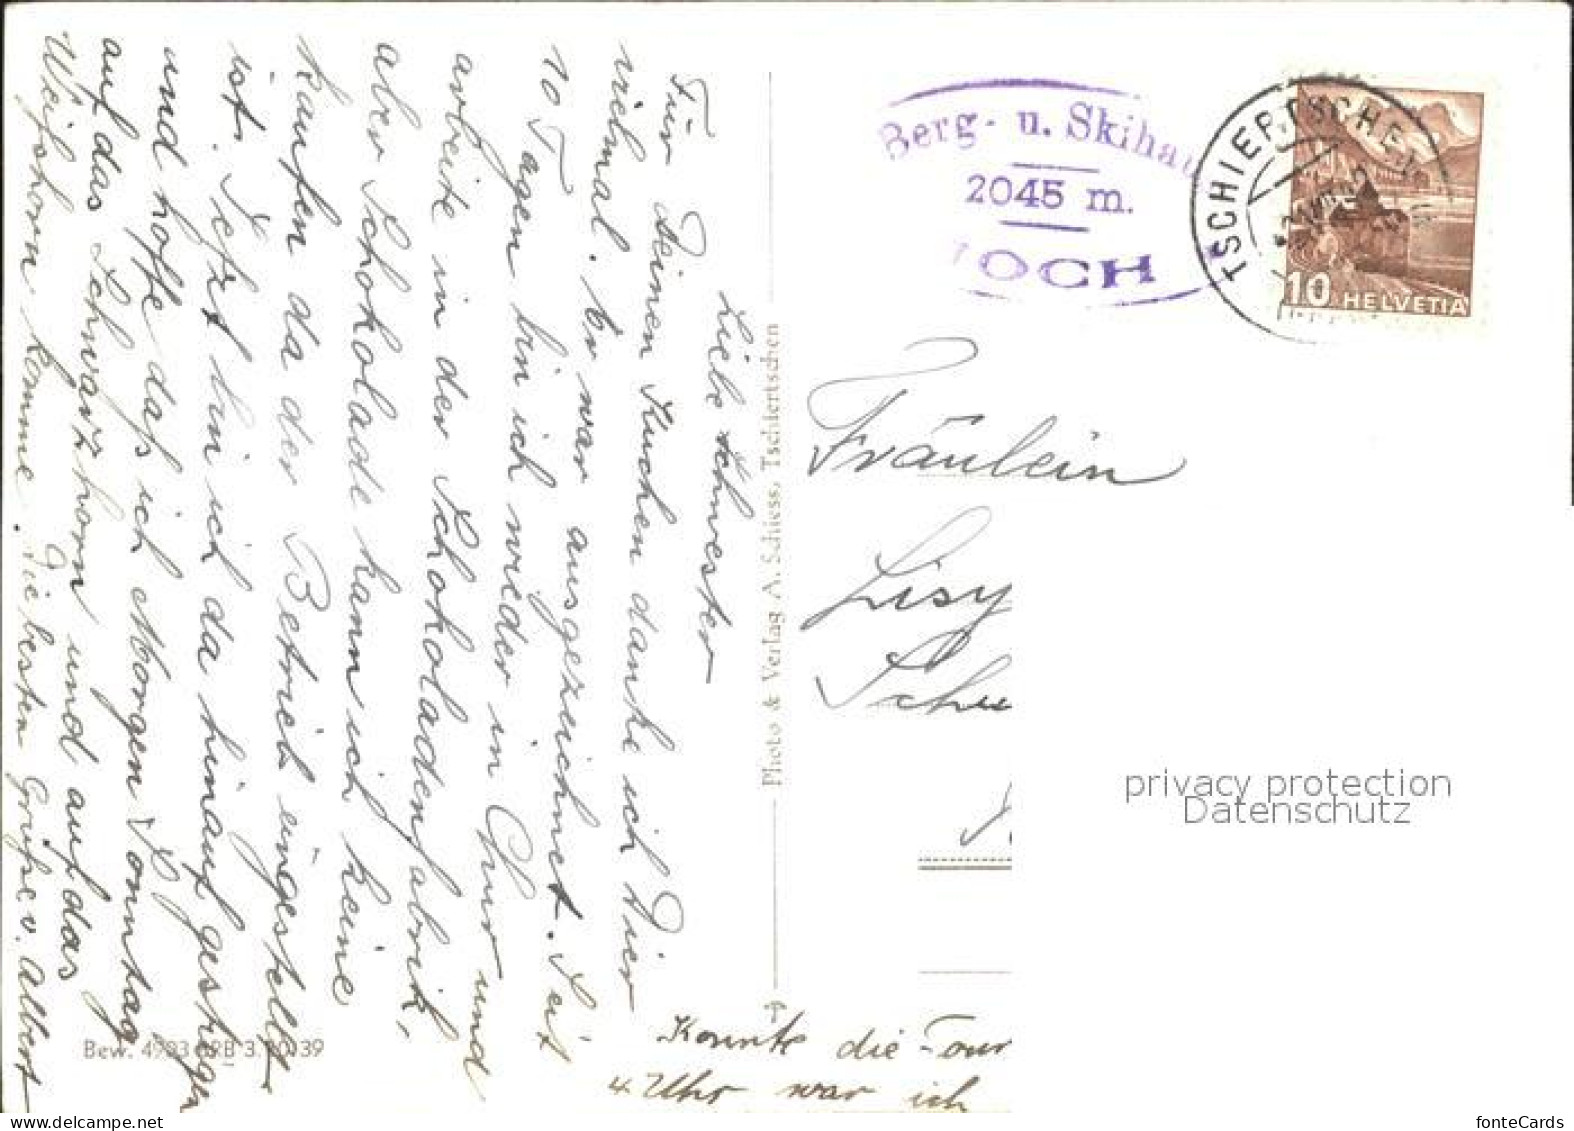 Liebe Schwester
Für Deinen Kuchen danke ich Dier
vielmal. Er war ausgezeichnet. Seit
10 Tagen bin ich wieder in Chur und
arbeite in der Schokoladenfabrik,
aber Schokolade kann ich keine
kaufen da der Betrieb eingestellt
ist. Jetzt bin ich da hinauf gestiegen
und hoffe daß ich Morgen Sonntag
auf das Schwarzhorn und auf das
Weißhorn komme. Die besten Grüße v. Albert
Bew. 3.10.39
Photo & Verlag A. Schiess, Tschiertschen
Berg- u. Skihau
2045 m.
JOCH
TSCHIERTSCHEN
10 HELVETIA
Fräulein
Lisy
Schu
Konnte die Tour
4 Uhr war ich
privacy protection
Datenschutz
fonteCards